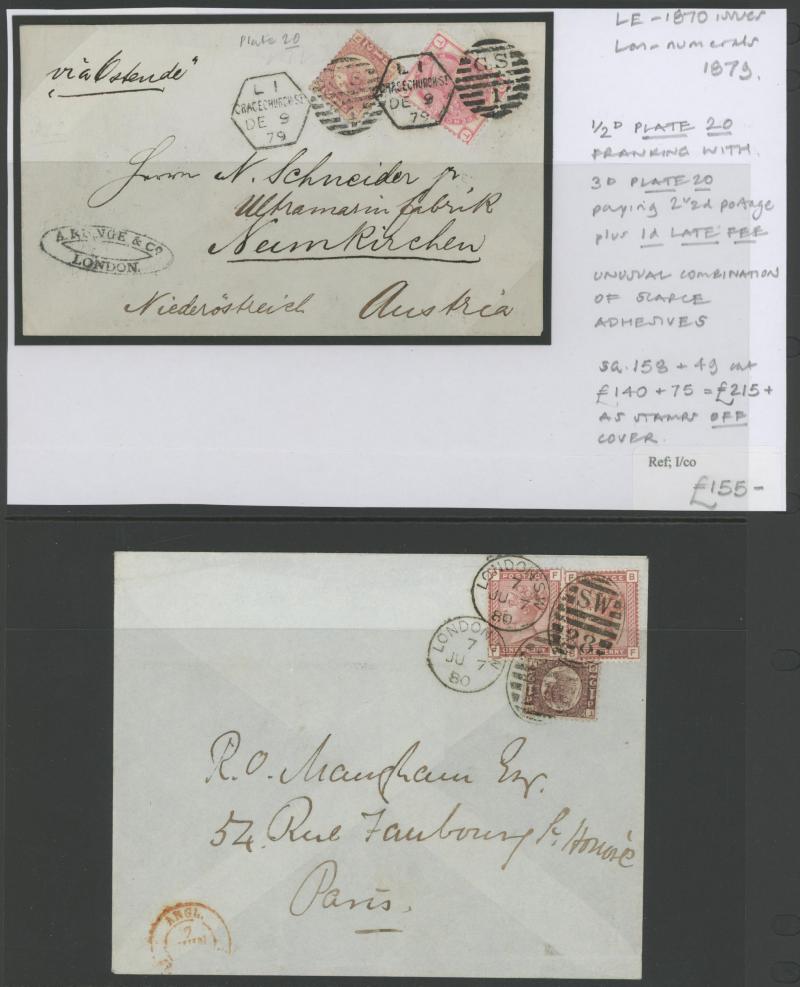 Plate 20
"via Ostende"
L 1
GRACECHURCH ST
DE 9
79
L 1
GRACECHURCH ST
DE 9
79
G.S
1
Herrn N. Schneider jr
Ultramarin fabrik
Neunkirchen
Niederöstreich Austria
& Co
LONDON.
LE - 1870 issues
Lon - numerals
1879.
1/2D PLATE 20
FRANKING WITH
3D PLATE 20
paying 2½d postage
plus 1d LATE FEE
UNUSUAL COMBINATION
OF SCARCE
ADHESIVES
SG.158 + 49 cat
£140 + 75 = £215+
AS STAMPS OFF
COVER.
Ref; I/co
£155-
LONDON.S.W
7
JU 7
80
LONDON
7
JU 7
80
POSTAGE F
B
F
S.W
23
R. O. Maugham Esq.
54. Rue Faubourg St. Honoré
Paris.
ANGL.
7